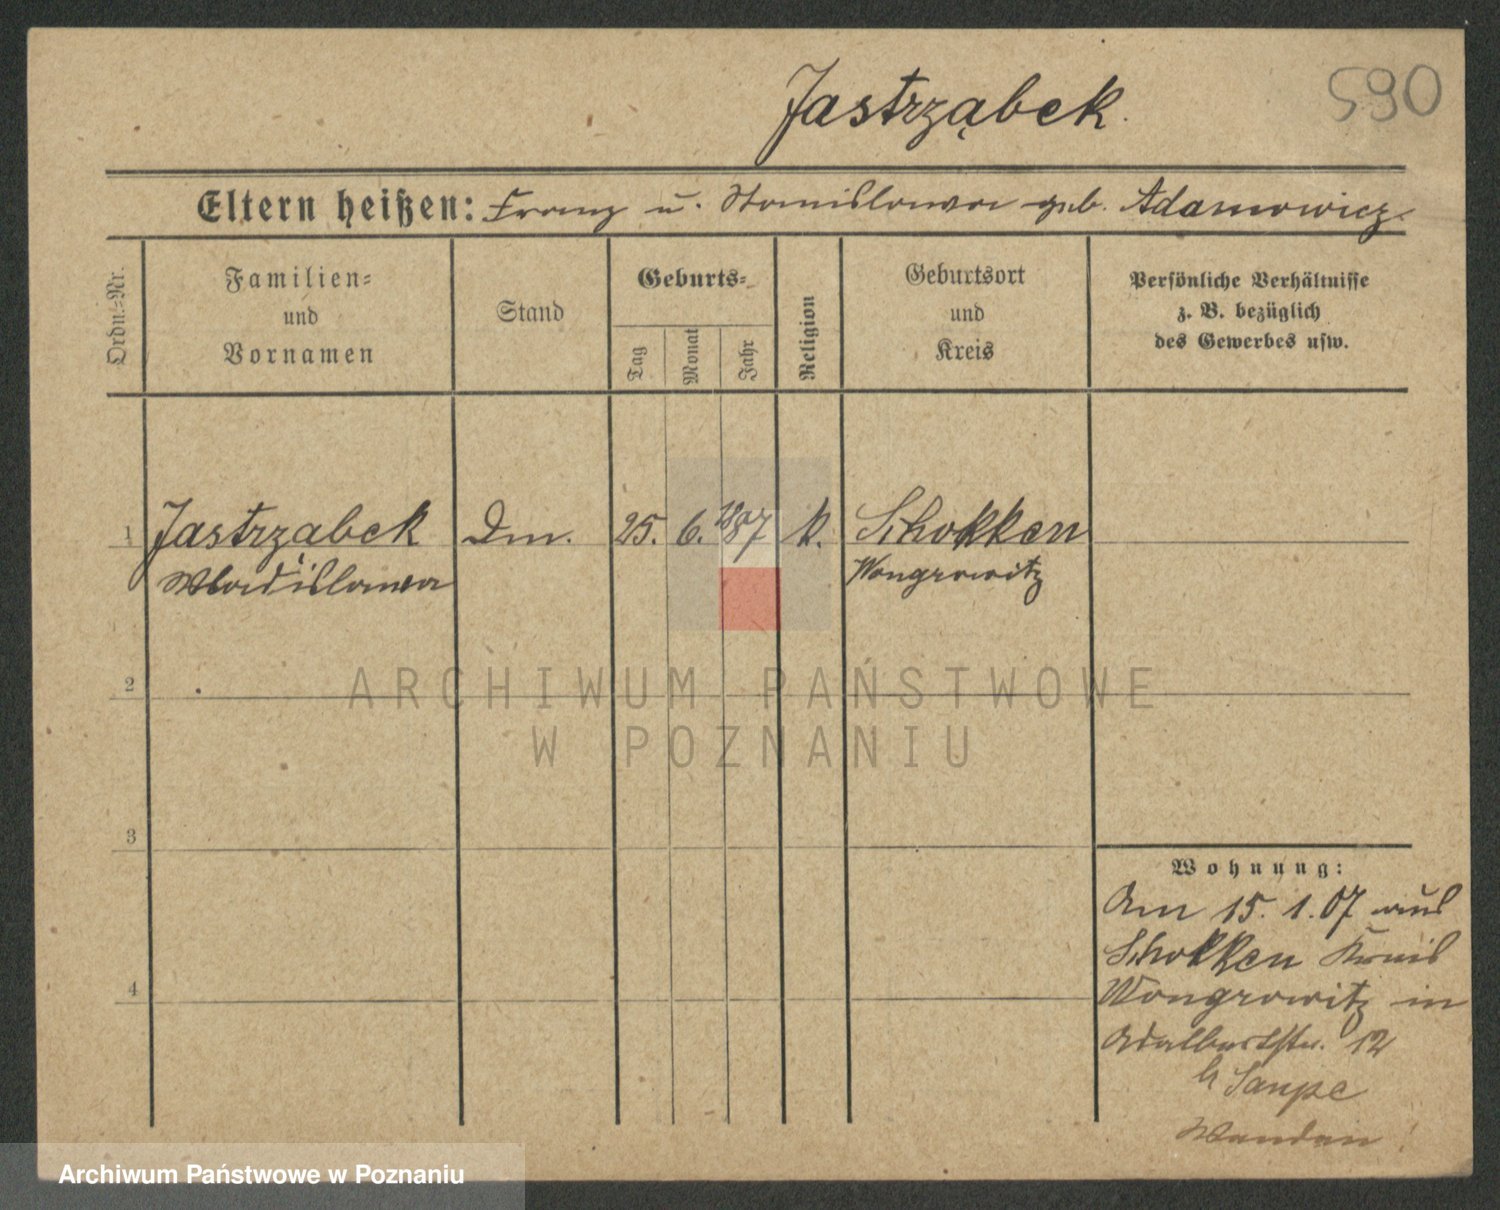 590
Jastrząbek.
Eltern heißen: Franz u. Stanislawa geb. Adamowicz.
Ordn.-Nr.
Familien-
und
Vornamen
Stand
Geburts-
Tag
Monat
Jahr
Religion
Geburtsort
und
Kreis
Persönliche Verhältnisse
z. B. bezüglich
des Gewerbes usw.
1 Jastrząbek Dm. 25. 6. 1887 k. Schokken
Wladislawa Wongrowitz
ARCHIWUM PAŃSTWOWE
W POZNANIU
2
3
4
Wohnung:
Am 15. 1. 07 aus
Schokken Kreis
Wongrowitz in
Adalbertstr. 12
b
Archiwum Państwowe w Poznaniu